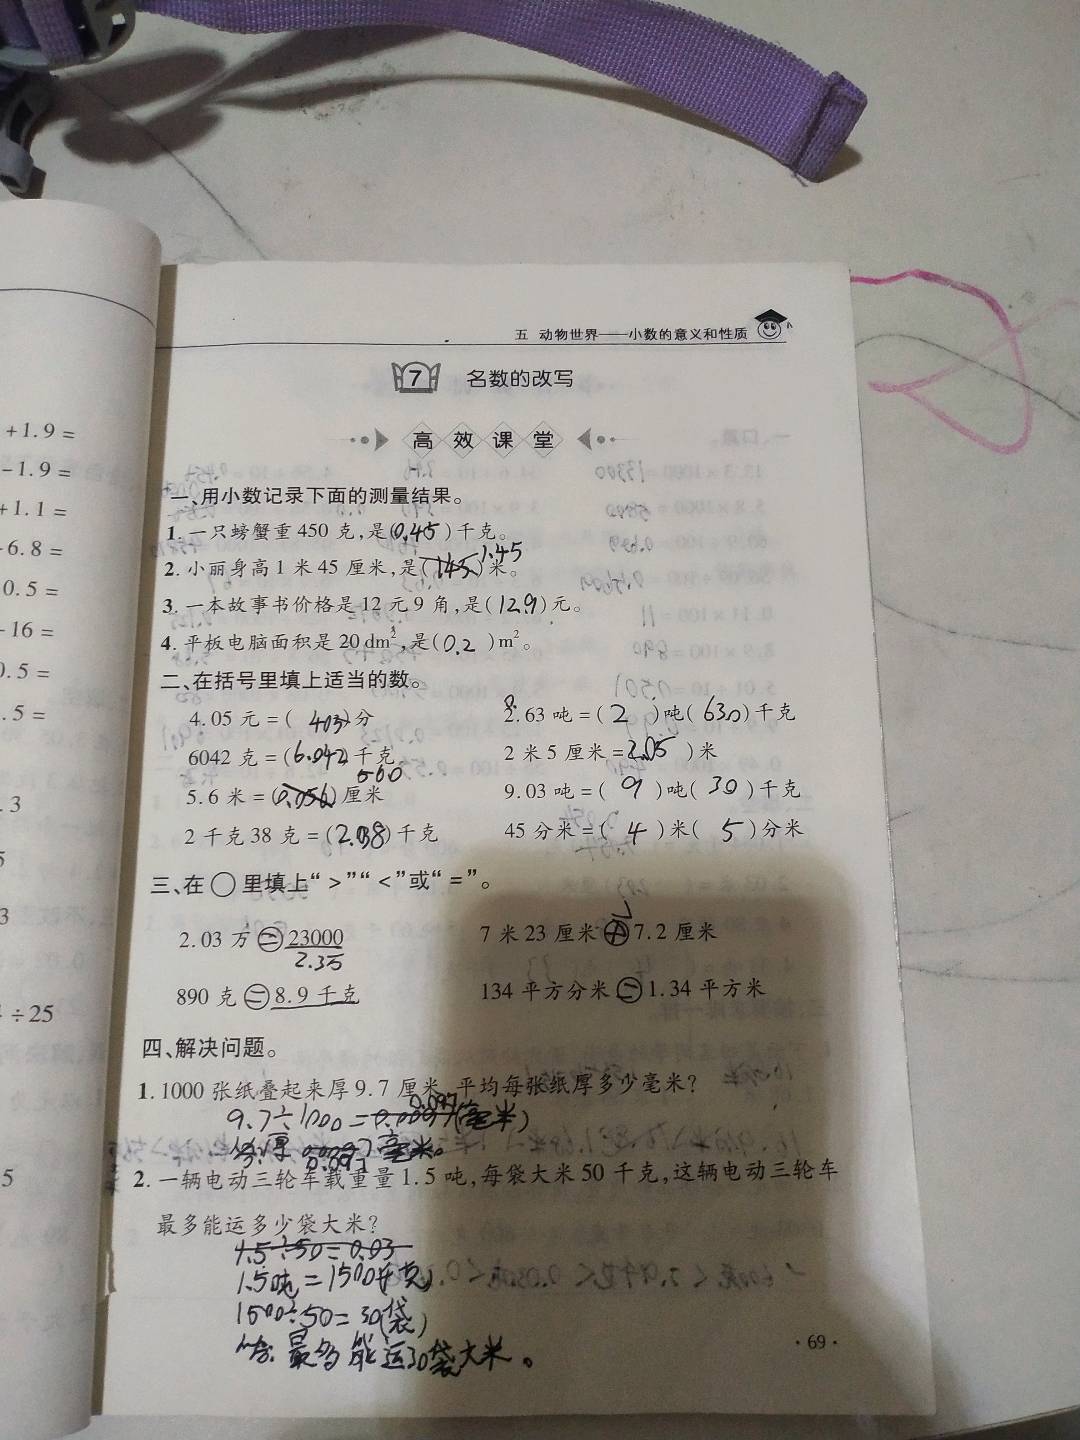 五 动物世界——小数的意义和性质
7 名数的改写
高效课堂
+1.9=
-1.9=
+1.1=
6.8=
0.5=
-16=
0.5=
.5=
.3
5
3
÷25
5
一、用小数记录下面的测量结果。
1.一只螃蟹重450克,是(0.45)千克。
1.45
2.小丽身高1米45厘米,是(145)米。
3.一本故事书价格是12元9角,是(12.9)元。
4.平板电脑面积是20 dm²,是(0.2)m²。
二、在括号里填上适当的数。
4.05元=(403)分 2.63吨=(2)吨(630)千克
6042克=(6.042)千克 2米5厘米=(2.05)米
560
5.6米=(0.056)厘米 9.03吨=(9)吨(30)千克
2千克38克=(2.038)千克 45分米=(4)米(5)分米
三、在○里填上“>”“<”或“=”。
2.03万 = 23000 7米23厘米 7.2厘米
2.3万
890克 = 8.9千克 134平方分米 = 1.34平方米
四、解决问题。
1.1000张纸叠起来厚9.7厘米,平均每张纸厚多少毫米?
0.097
9.7÷1000=0.0097(毫米)
厚0.0097毫米。
0.097
2.一辆电动三轮车载重量1.5吨,每袋大米50千克,这辆电动三轮车
最多能运多少袋大米?
1.5÷50=0.03
1.50吨=1500(千克)
1500÷50=30(袋)
答:最多能运30袋大米。
·69·